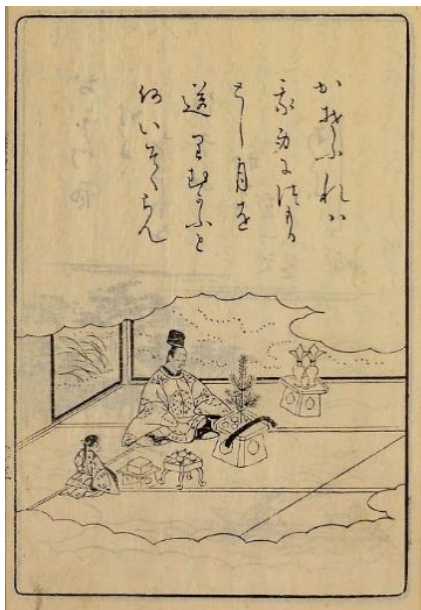 かそふれハ
我身につもる
とし月を
送りむかふと
何いそくらん